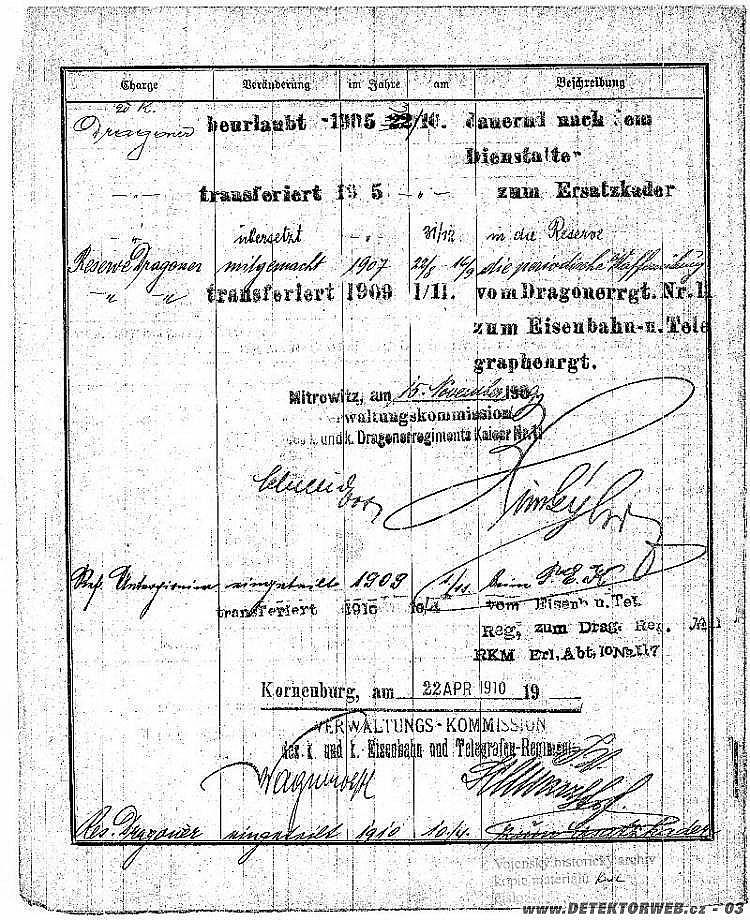 Charge Veränderung im Jahre am Beschreibung
Dragoner beurlaubt 1905 22/10. dauernd nach dem
Dienstalter
transferiert 19 5 zum Ersatzkader
" übersetzt " 31/12 in die Reserve
Reserve Dragoner mitgemacht 1907 die periodische Waffenübung
" " transferiert 1909 1/11. vom Dragonerrgt. Nr. 11
zum Eisenbahn-u. Tele
graphenrgt.
Mitrowitz, am 15. November 1909
erwaltungskommission
des k. und k. Dragonerregiments Kaiser Nr. 11
Res. Unterpionier eingeteilt 1909 1/11. beim
transferiert 1910 10/4 vom Eisenb u. Tel.
Reg. zum Drag. Reg. №11
RKM Erl. Abt. 10 No. 117
Korneuburg, am 22 APR 1910 19
VERWALTUNGS-KOMMISSION
des k. und k. Eisenbahn und Telegrafen-Regiments
Res. Dragoner eingeteilt 1910 10/4. beim Ersatzkader
Vojenský historický archiv
kopie materiálů
www.DETEKTORWEB.cz - 03